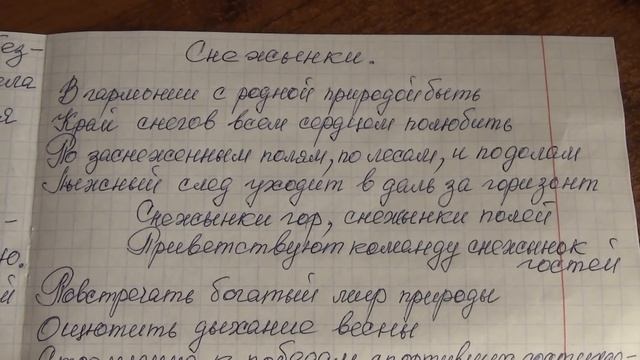 без-
ела
я
Снежынки.
В гармонии с родной природой быть
Край снегов всем сердцем полюбить
По заснеженным полям, по лесам, и по долам
Лыжный след уходит в даль за горизонт
Снежынки гор, снежынки полей
Приветствуют команду снежынок
гостей
-
ю.
й
Повстречать богатый мир природы
Ощютить дыхание весны
Стремление к победам спортивных